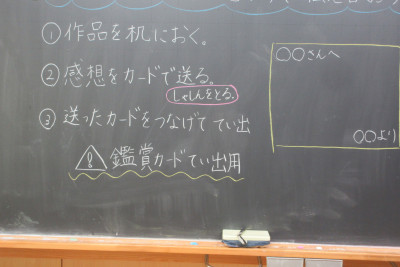 ①作品を机におく。
②感想をカードで送る。
しゃしんをとる。
③送ったカードをつなげててい出
⚠鑑賞カードてい出用
○○さんへ
○○より